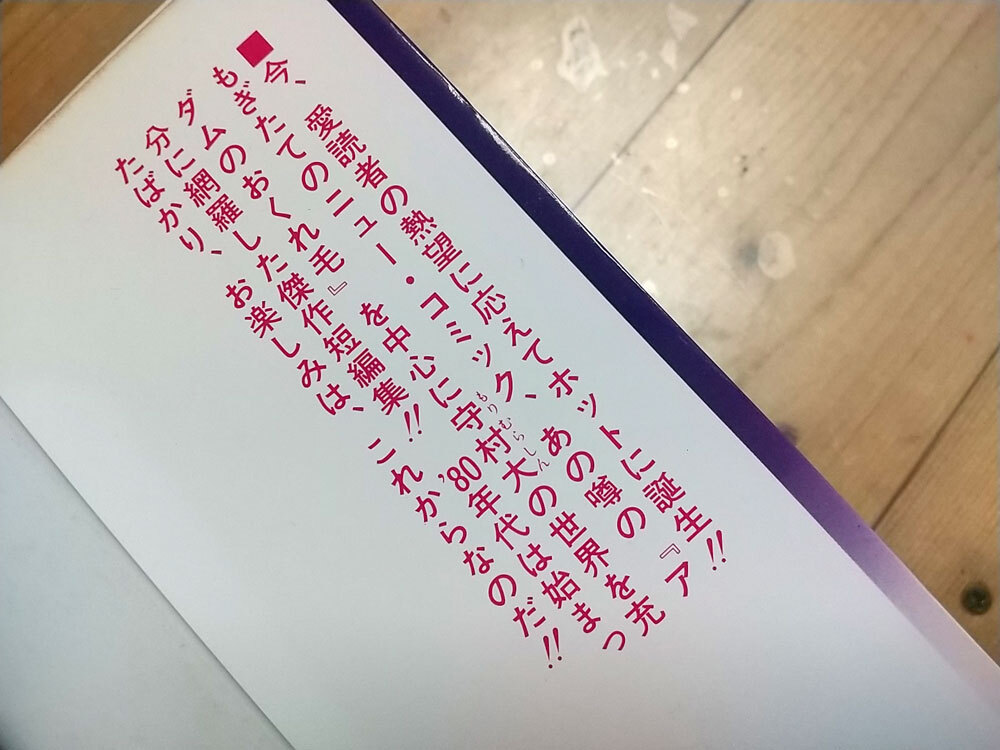 ■今、愛読者の熱望に応えてホットに誕生!!
もぎたてのニュー・コミック、あの噂の『ア
ダムのおくれ毛』を中心に守村大の世界を充
もりむらしん
分に網羅した傑作短編集!! '80年代は始まっ
たばかり、お楽しみは、これからなのだ!!